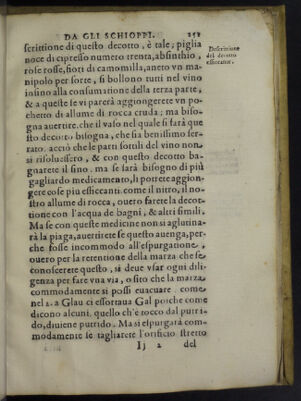 DA GLI SCHIOPPI. 251
scrittione di questo decotto, è tale; piglia
noce di cipresso numero trenta, absinthio,
rose rosse, fiori di camomilla, aneto vn ma-
nipolo per sorte, si bollono tutti nel vino
insino alla consumatione della terza parte,
& a queste se vi parerà aggiongerete vn po-
chetto di allume di rocca cruda; ma biso-
gna auertire, che il vaso nel quale si farà que
sto decotto bisogna, che sia benissimo ser-
rato, acciò che le parti sottili del vino non
si risoluessero, & con questo decotto ba-
gnarete il sino. ma se farà bisogno di più
gagliardo medicamento, li potrete aggion-
gere cose piu essiccanti. come il nitro, il no-
stro allume di rocca, ouero farete la decot-
tione con l'acqua de bagni, & altri simili.
Ma se con queste medicine non si aglutina-
rà la piaga, auertirete se questo auenga, per-
che fosse incommodo all'espurgatione,
ouero per la retentione della marza che se
conoscerete questo, si deue vsar ogni dili-
genza per fare vna via, o sito che la marza
commodamente si possi euacuare. come
nel 2. a Glau ci essortaua Gal poiche come
dicono alcuni. quello ch'è rocco dal putri-
do, diuiene putrido. Ma si espurgarà com-
modamente se tagliarete l'orificio stretto
Ii 2 del
Descrittione
del decotto
essiccante.